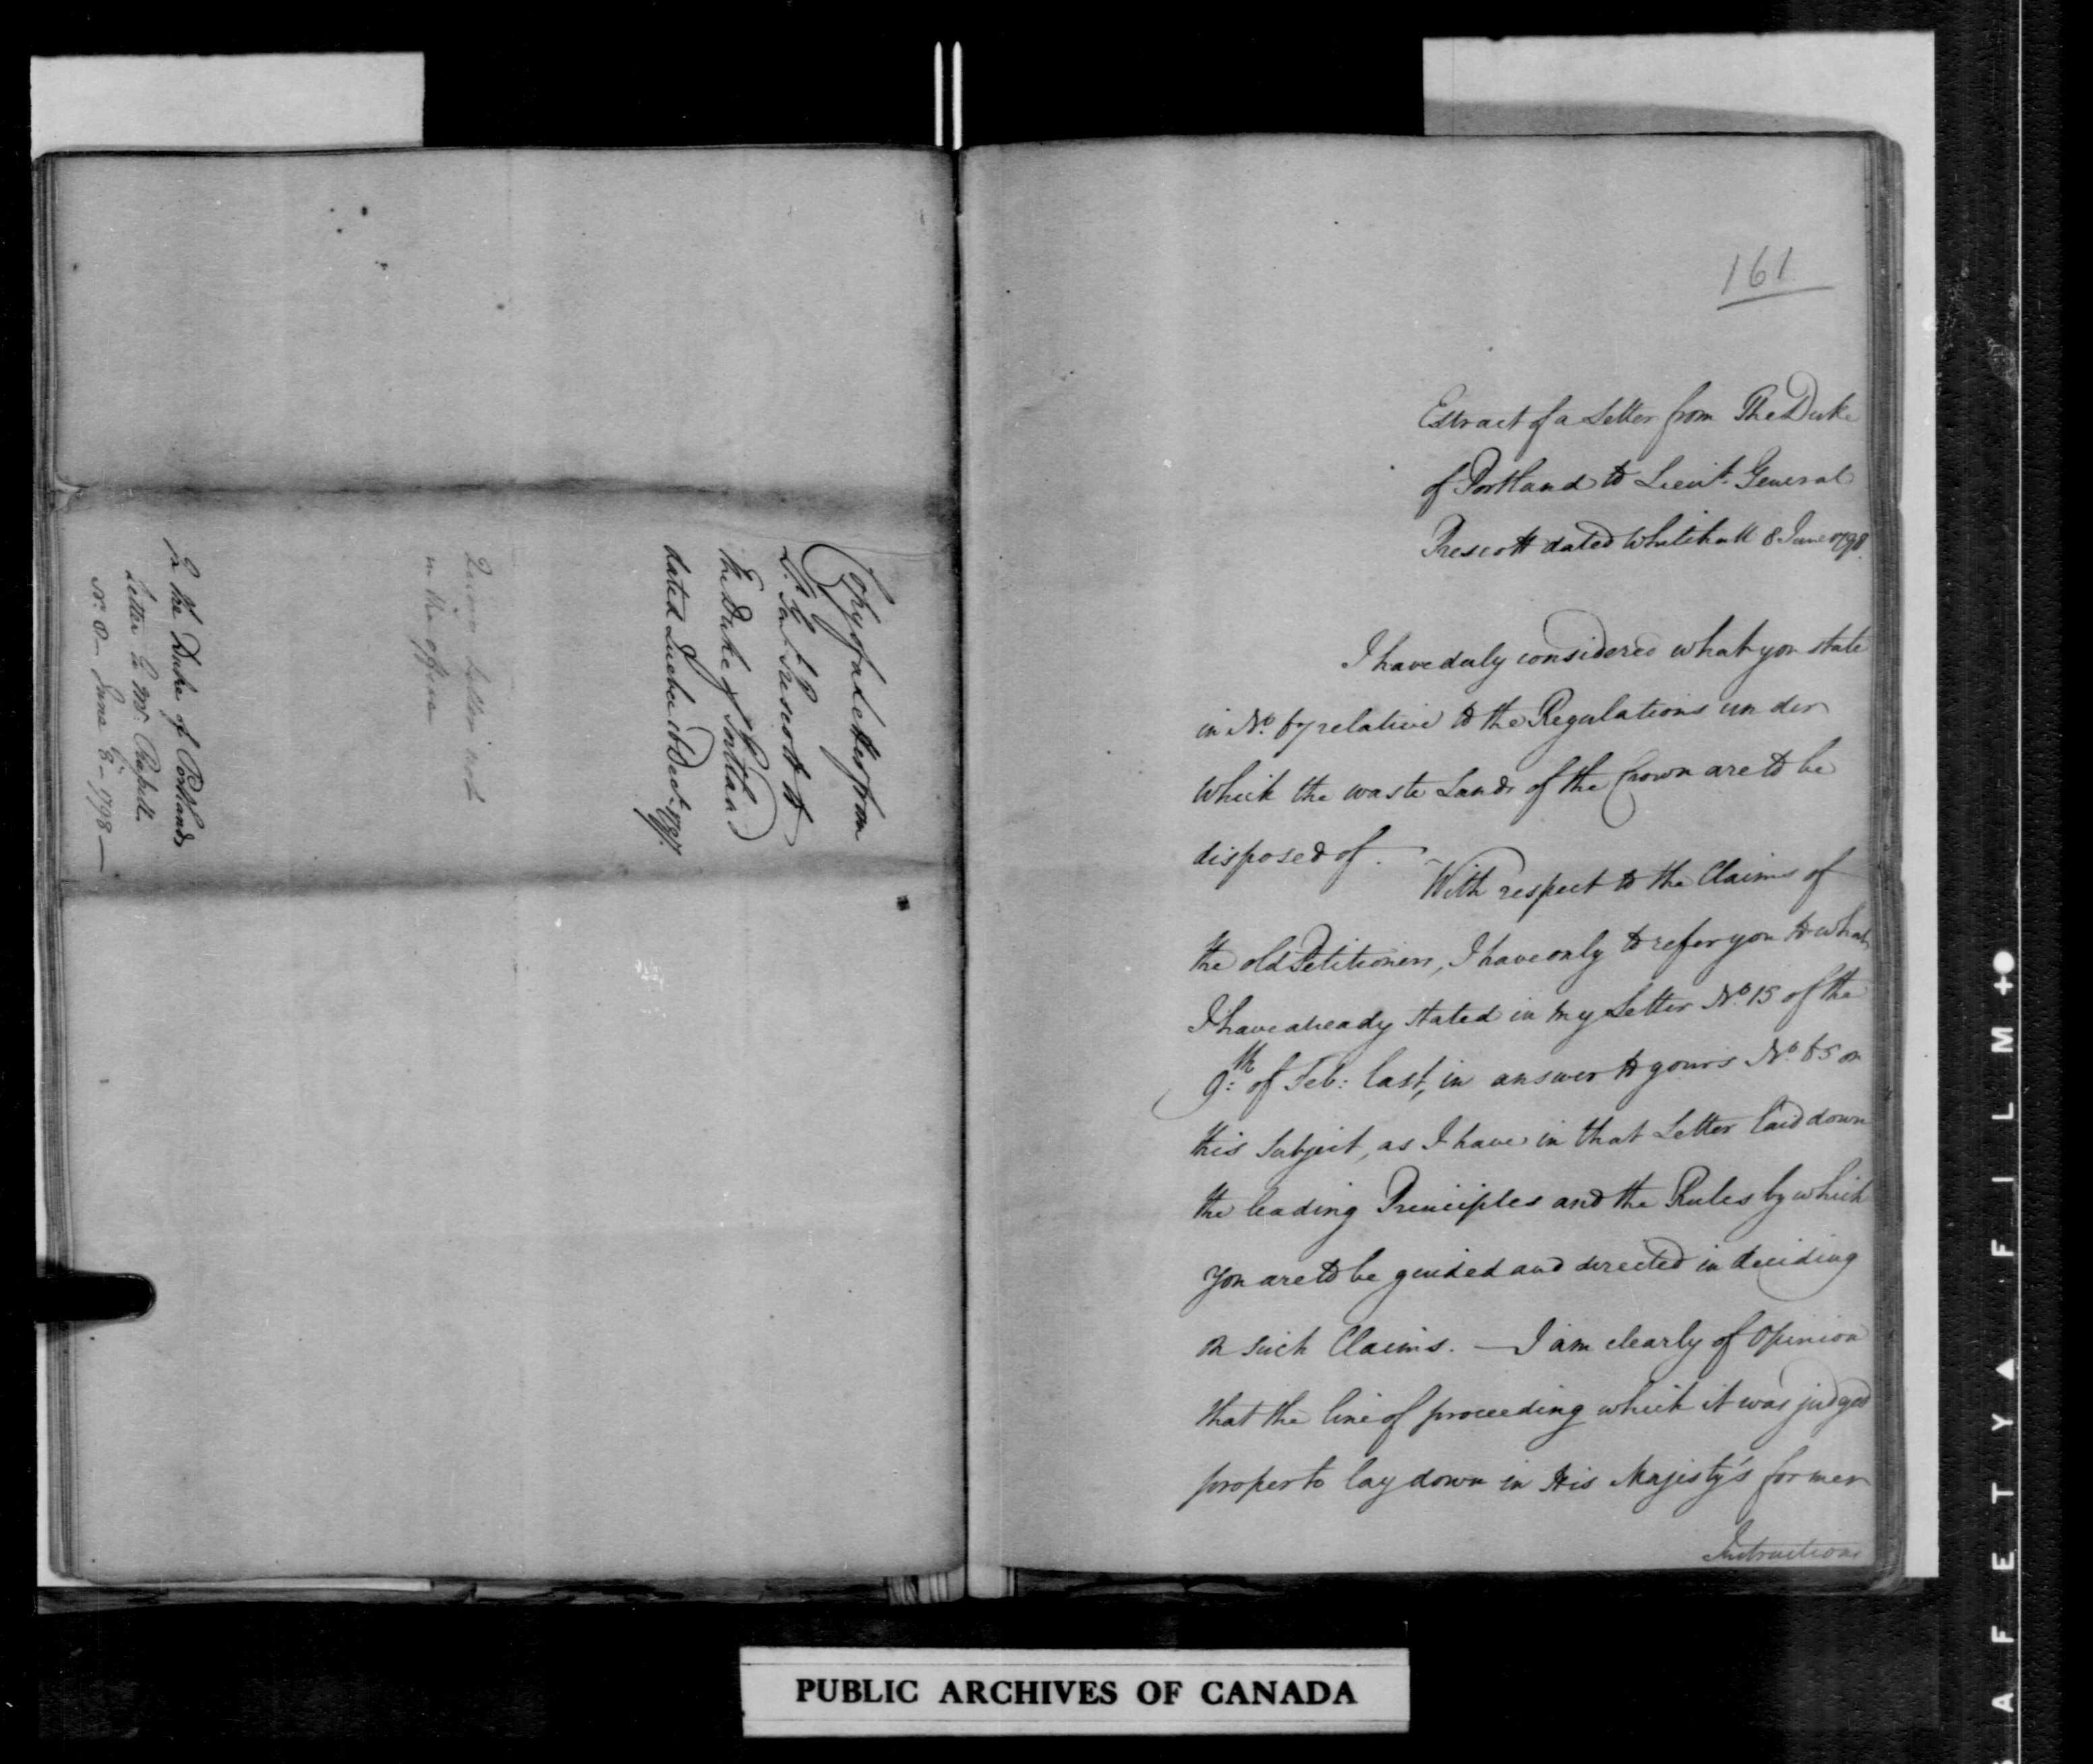 Copy of a Letter from
L.t Gen.l Prescott to
the Duke of Portland
dated Quebec Dec.r 1797.
Letter not
in the office
In the Duke of Portlands
Letter to Mr. Russell
June 8 - 1798 —
161
Extract of a Letter from The Duke
of Portland to Lieut. General
Prescott dated Whitehall 8 June 1798.
I have duly considered what you state
in No. 67 relative to the Regulations under
which the waste Lands of the Crown are to be
disposed of. With respect to the Claims of
the old Petitioners, I have only to refer you to what
I have already stated in my Letter No. 15 of the
9th of Feb: last, in answer to yours No. 65 on
this Subject, as I have in that Letter laid down
the leading Principles and the Rules by which
you are to be guided and directed in deciding
on such Claims. — I am clearly of Opinion
that the line of proceeding which it was judged
proper to lay down in His Majesty's former
Instructions
PUBLIC ARCHIVES OF CANADA
SAFETY ▲ FILM